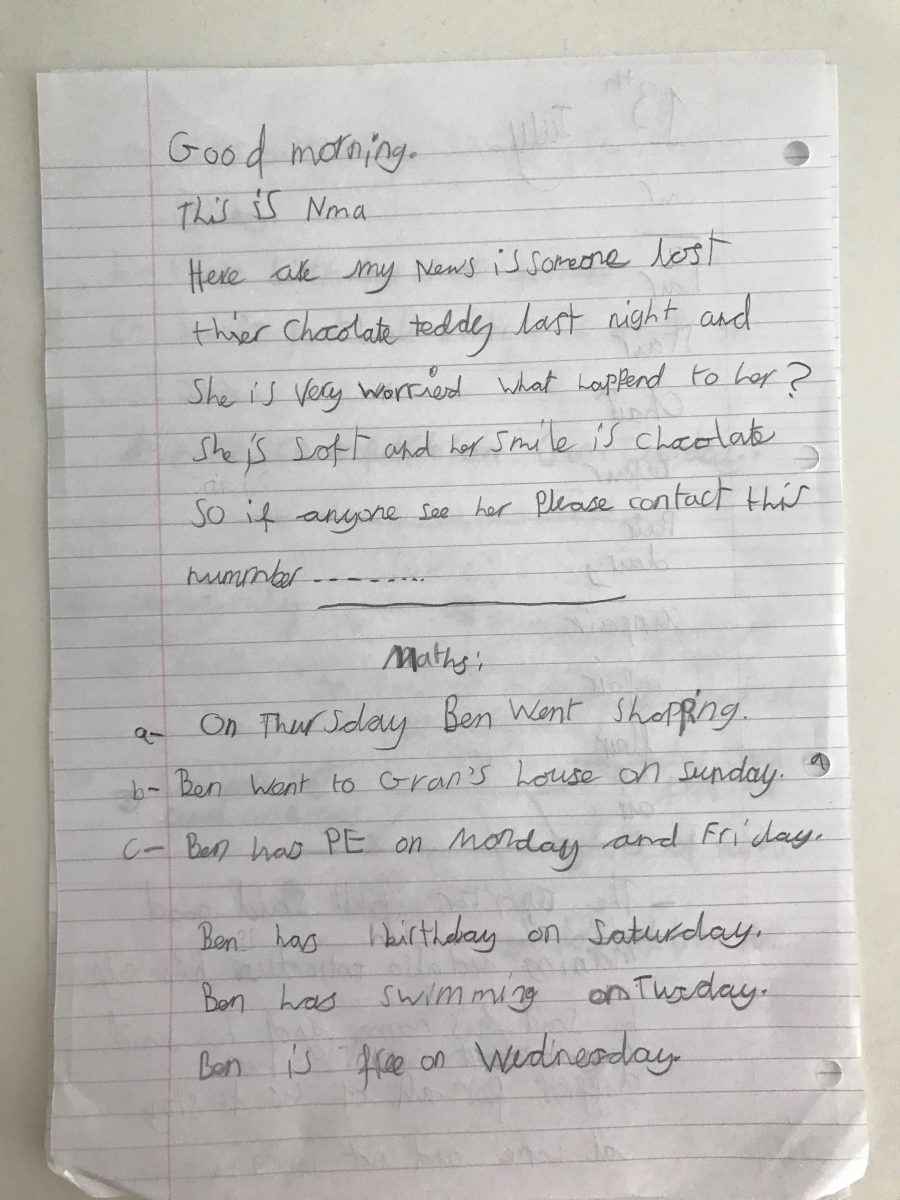 Good morning.
This is Nma
Here are my News is someone lost
thier Chocolate teddy last night and
She is very worried what happend to her?
She is Soft and her Smile is chocolate
So if anyone see her Please contact this
nummber ---------
Maths:
a- On Thursday Ben Went Shopping.
b- Ben Went to Gran's house on Sunday.
c- Ben has PE on Monday and Friday.
Ben has birthday on Saturday.
Ben has swimming on Tusday.
Ben is free on Wednesday.